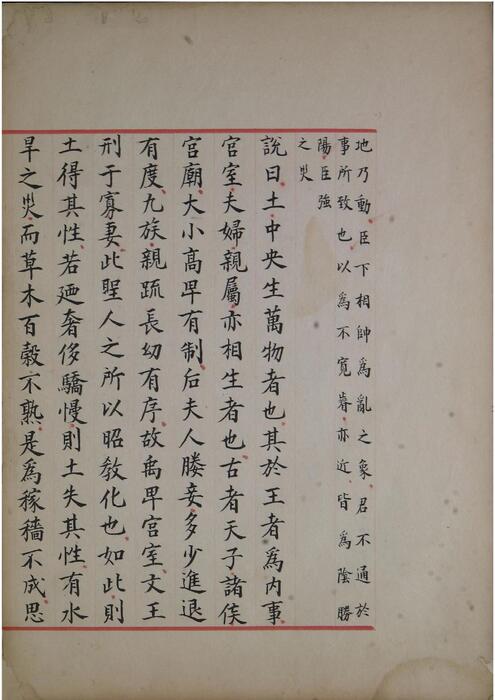 地乃動臣下相帥爲亂之象君不通於
事所致也以爲不寬亦近皆爲陰勝
陽臣強
之災
說曰土中央生萬物者也其於王者爲内事
宮室夫婦親屬亦相生者也古者天子諸侯
宮廟大小高卑有制后夫人媵妾多少進退
有度九族親疏長幼有序故禹卑宮室文王
刑于寡妻此聖人之所以昭教化也如此則
土得其性若廼奢侈驕慢則土失其性有水
旱之災而草木百穀不熟是爲稼穡不成思